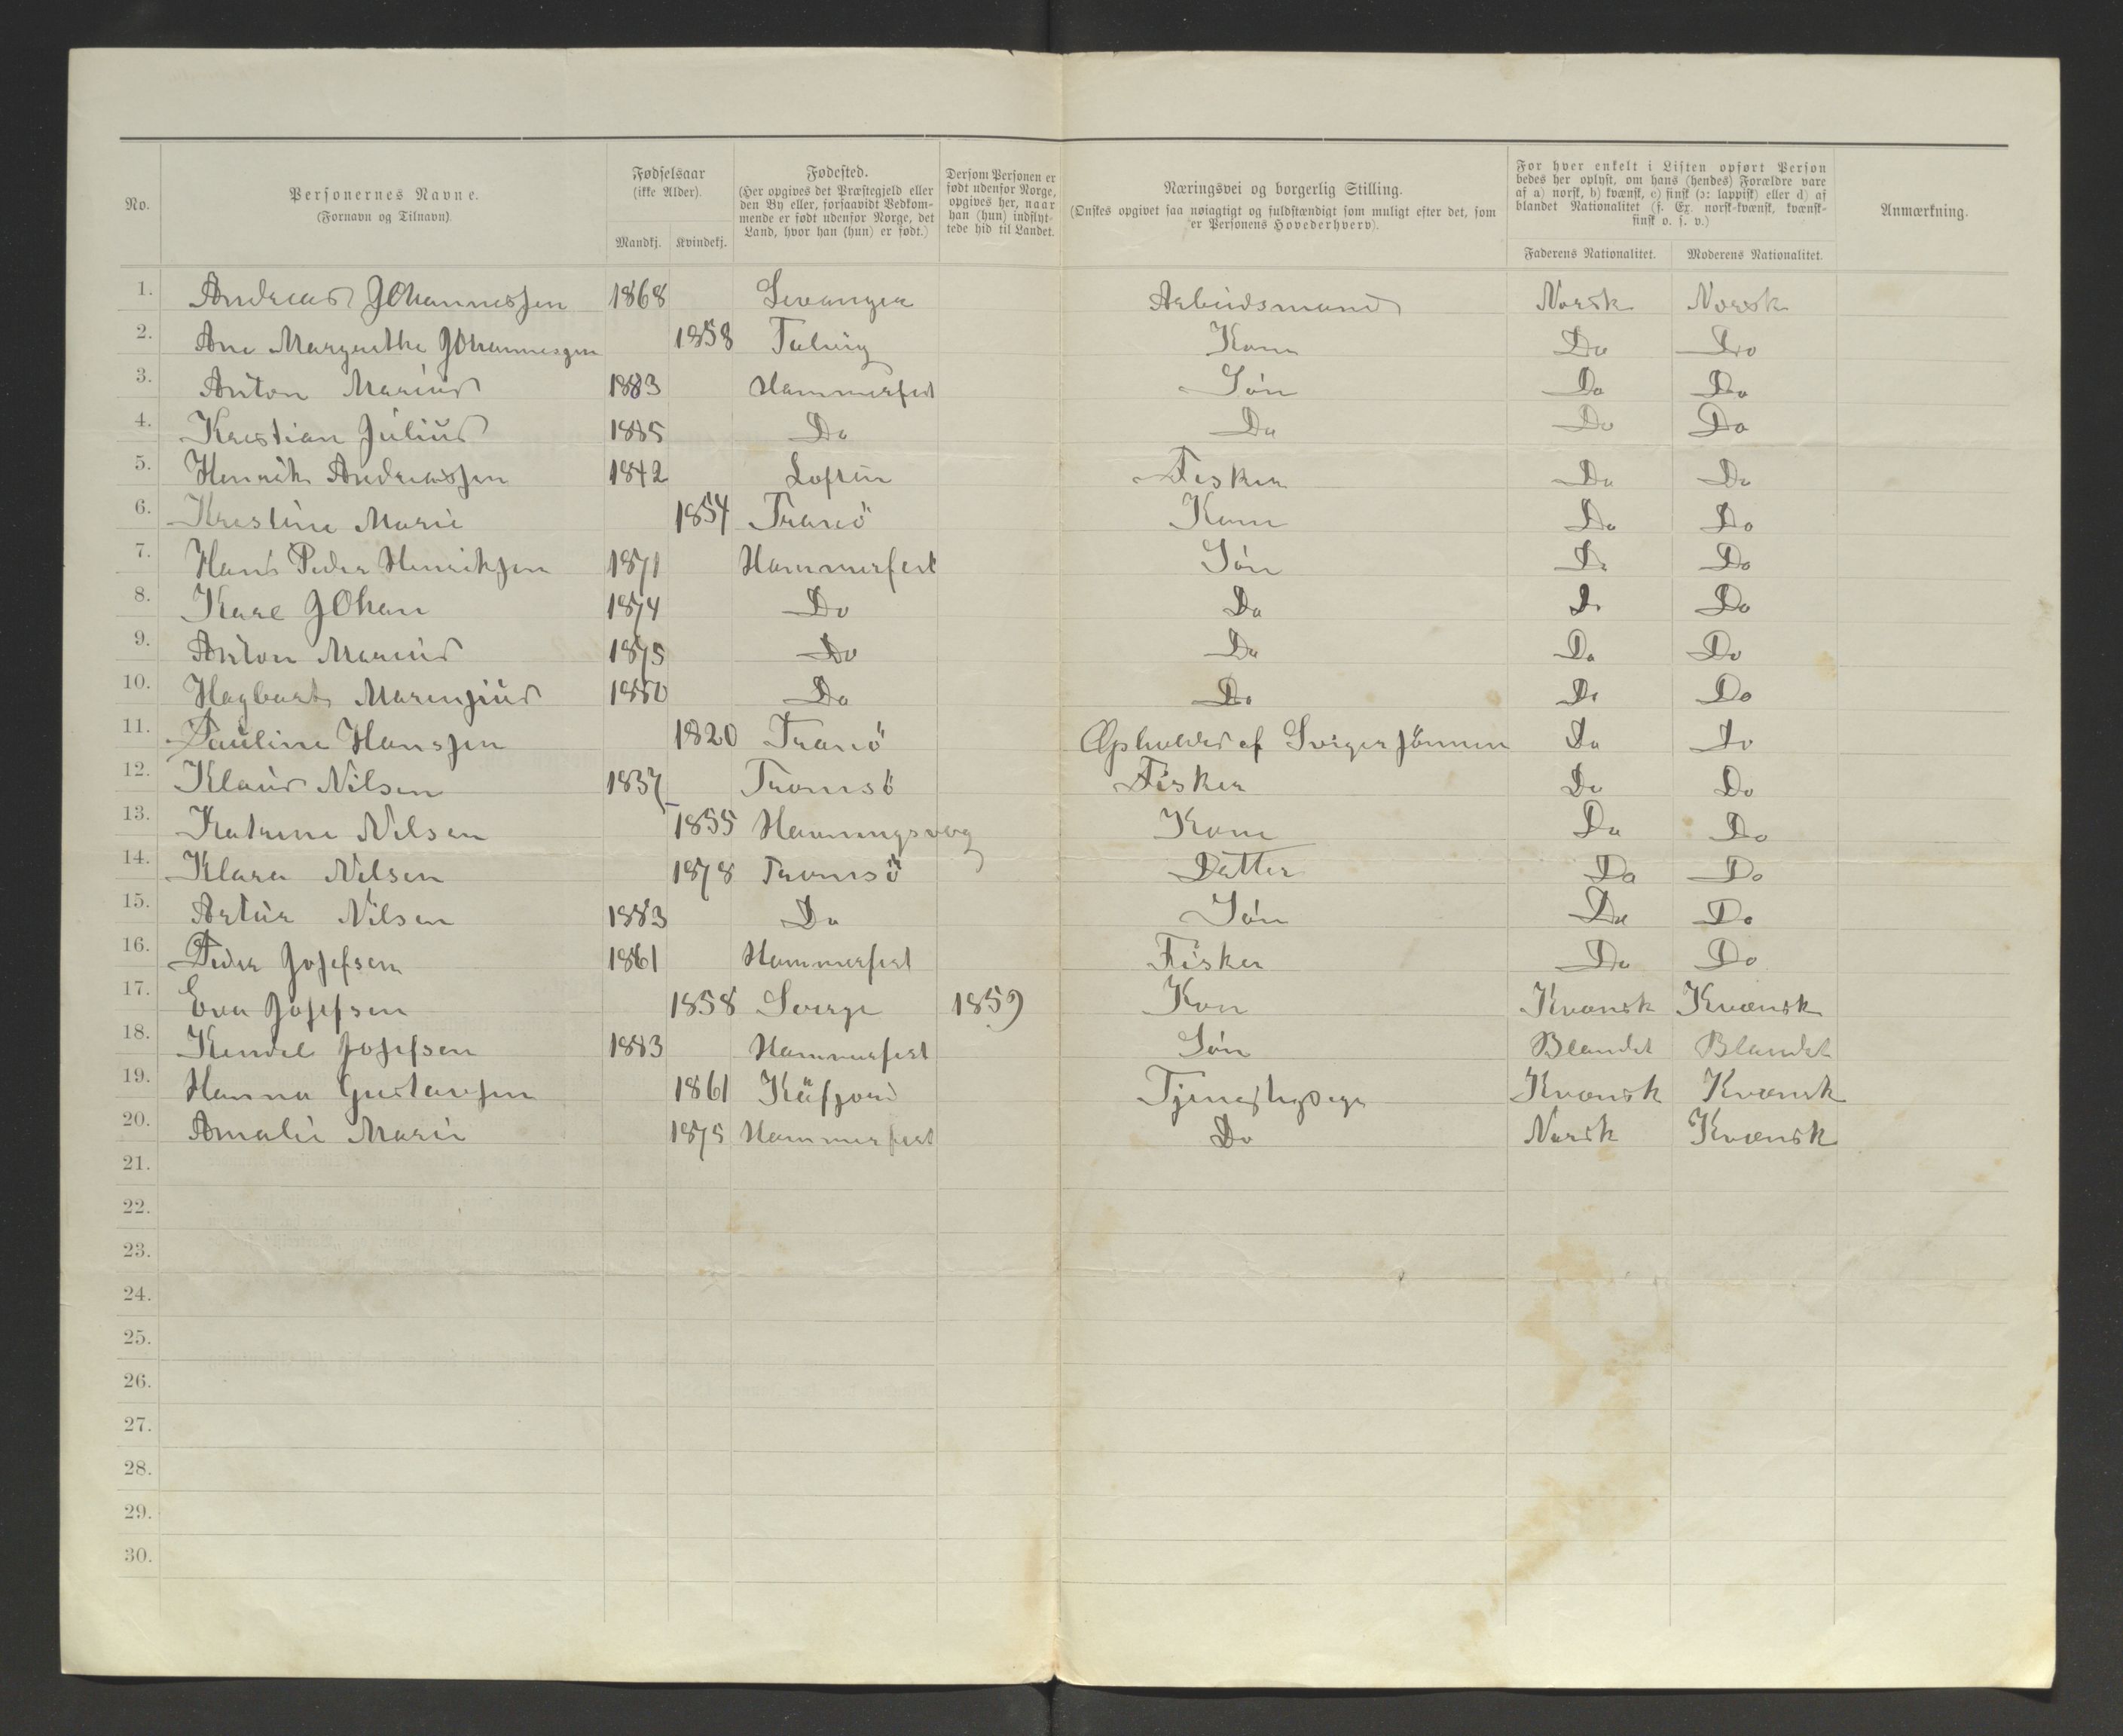 No.
Personernes Navne.
(Fornavn og Tilnavn).
Fødselsaar
(ikke Alder).
Mandkj. Kvindekj.
Fødested.
(Her opgives det Præstegjeld eller
den By eller, forsaavidt Vedkom-
mende er født udenfor Norge, det
Land, hvor han (hun) er født.)
Dersom Personen er
født udenfor Norge,
opgives her, naar
han (hun) indflyt-
tede hid til Landet.
Næringsvei og borgerlig Stilling.
(Ønskes opgivet saa nøiagtigt og fuldstændigt som muligt efter det, som
er Personens Hovederhverv).
For hver enkelt i Listen opført Person
bedes her oplyst, om hans (hendes) Forældre vare
af a) norsk, b) kvænsk, c) finsk (ɔ: lappisk) eller d) af
blandet Nationalitet (f. Ex. norsk-kvænsk, kvænsk-
finsk o. s. v.)
Faderens Nationalitet. Moderens Nationalitet.
Anmærkning.
1. Andreas Johannessen 1868 Levanger Arbeidsmand Norsk Norsk
2. Ane Margrethe Johannesgen 1858 Talvig Kone Do Do
3. Anton Marius 1883 Hammerfest Søn Do Do
4. Kristian Julius 1885 Do Do Do Do
5. Henrik Andreassen 1842 Loften Fisker Do Do
6. Kristine Marie 1854 Tranö Kone Do Do
7. Hans Peder Henriksen 1871 Hammerfest Søn Do Do
8. Karl Johan 1874 Do Do Do Do
9. Anton Marius 1875 Do Do Do Do
10. Hagbart Marensius 1880 Do Do Do Do
11. Pauline Hanssen 1820 Tranö Opholdes af Svigersønnen Do Do
12. Klaus Nilsen 1837 Tromsö Fisker Do Do
13. Katrine Nilsen 1855 Honningsvog Kone Do Do
14. Klara Nilsen 1878 Tromsö Datter Do Do
15. Artur Nilsen 1883 Do Søn Do Do
16. Peder Josefsen 1861 Hammerfest Fisker Do Do
17. Eva Josefsen 1858 Sverge 1859 Kon Kvænsk Kvænsk
18. Josefsen 1883 Hammerfest Søn Blandet Blandet
19. Hanna Gustavsen 1861 Kåfjord Tjenestepige Kvænsk Kvænsk
20. Amalie Marie 1875 Hammerfest Do Norsk Kvænsk
21.
22.
23.
24.
25.
26.
27.
28.
29.
30.